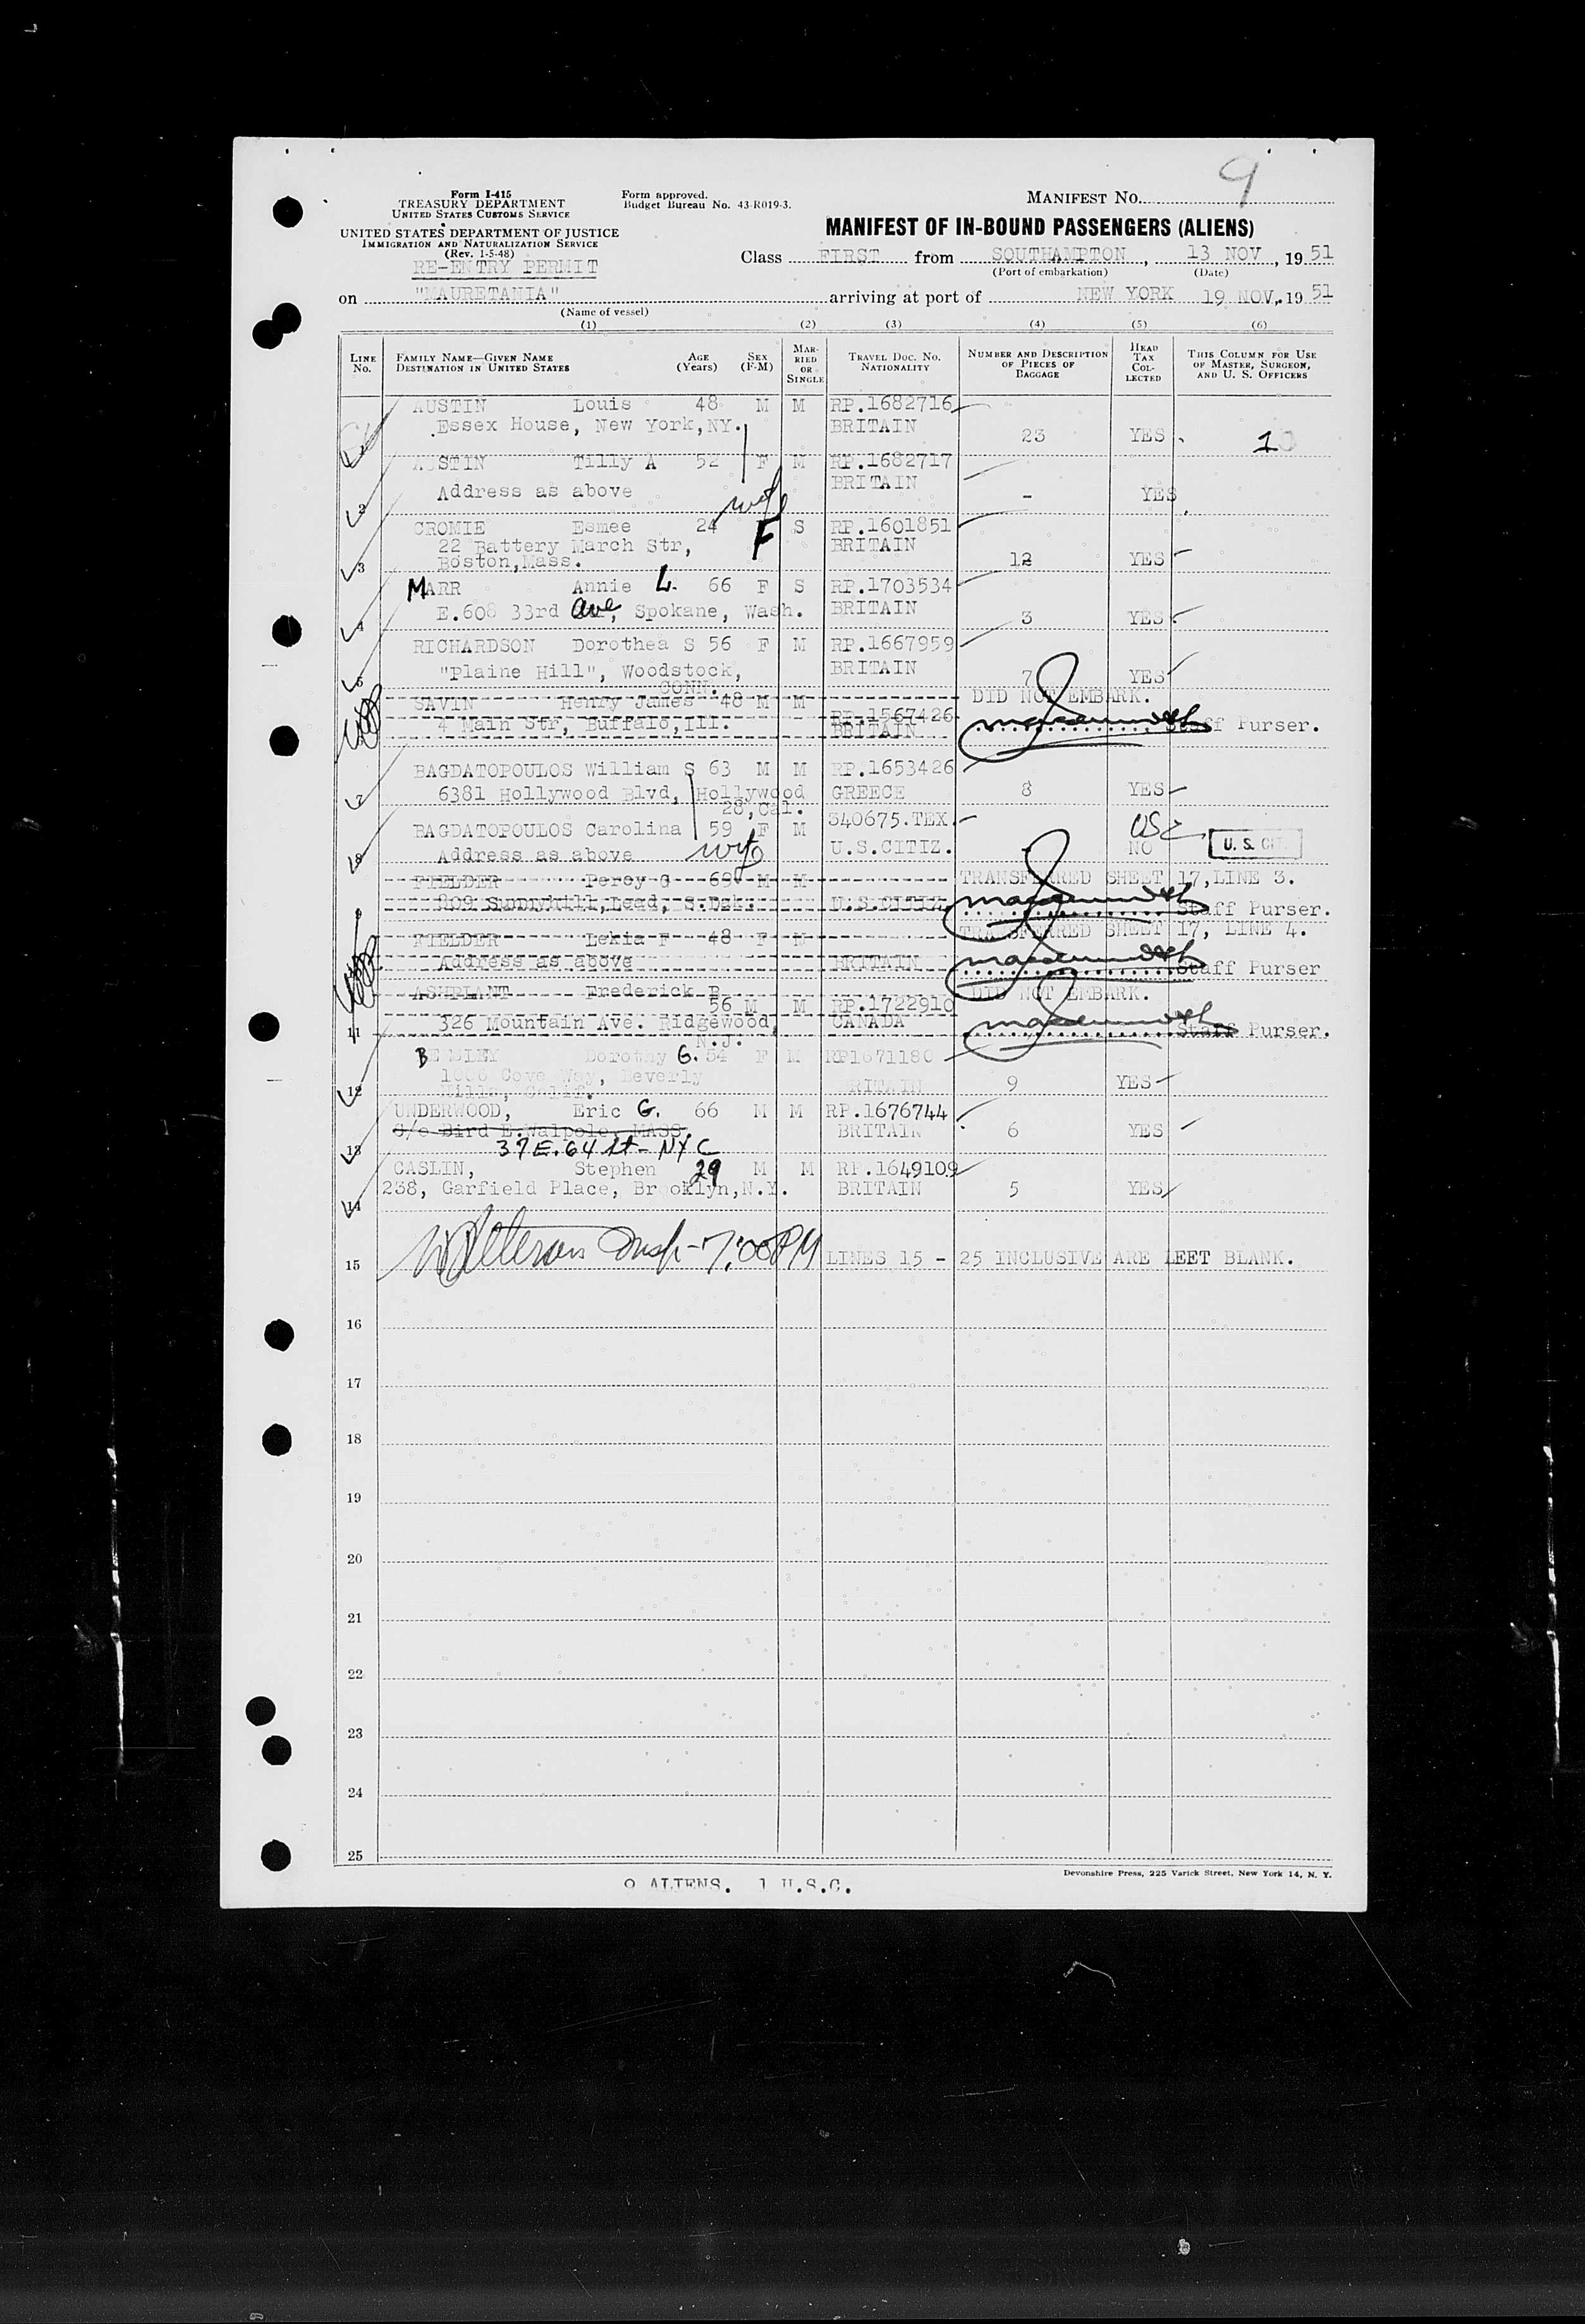 9
Form I-415
TREASURY DEPARTMENT
UNITED STATES CUSTOMS SERVICE
UNITED STATES DEPARTMENT OF JUSTICE
IMMIGRATION AND NATURALIZATION SERVICE
(Rev. 1-5-48)
RE-ENTRY PERMIT
Form approved.
Budget Bureau No. 43-R019-3.
MANIFEST No.
MANIFEST OF IN-BOUND PASSENGERS (ALIENS)
Class FIRST from SOUTHAMPTON, 13 NOV, 1951
(Port of embarkation) (Date)
on "MAURETANIA" arriving at port of NEW YORK 19 NOV, 1951
(Name of vessel)
(1) (2) (3) (4) (5) (6)
LINE No. FAMILY NAME—GIVEN NAME DESTINATION IN UNITED STATES AGE (Years) SEX (F-M) MARRIED OR SINGLE TRAVEL DOC. NO. NATIONALITY NUMBER AND DESCRIPTION OF PIECES OF BAGGAGE HEAD TAX COLLECTED THIS COLUMN FOR USE OF MASTER, SURGEON, AND U. S. OFFICERS
AUSTIN Louis 48 M M RP.1682716
Essex House, New York,NY. BRITAIN 23 YES
AUSTIN Tilly A 52 F M RP.1682717
2 Address as above wife BRITAIN - YES
CROMIE Esmee 24 F S RP.1601851
22 Battery March Str, BRITAIN
3 Boston,Mass. 12 YES
MARR Annie L. 66 F S RP.1703534
4 E.608 33rd Ave, Spokane, Wash. BRITAIN 3 YES
RICHARDSON Dorothea S 56 F M RP.1667959
5 "Plaine Hill", Woodstock, BRITAIN 7 YES
CONN.
SAVIN Henry James 48 M M DID NOT EMBARK.
4 Main Str, Buffalo,Ill. RP.1567426 BRITAIN Staff Purser.
BAGDATOPOULOS William S 63 M M RP.1653426
7 6381 Hollywood Blvd, Hollywood GREECE 8 YES
28,Cal.
BAGDATOPOULOS Carolina 59 F M 340675.TEX. USC
8 Address as above wife U.S.CITIZ. - NO U. S. CIT.
FIELDER Percy G 69 M M TRANSFERRED SHEET 17,LINE 3.
9 809 Sunnyhill,Lead, S.Dak. U.S.CITIZ. Staff Purser.
FIELDER Lekia F 48 F M TRANSFERRED SHEET 17, LINE 4.
Address as above BRITAIN Staff Purser
ASHPLANT Frederick B DID NOT EMBARK.
56 M M RP.1722910
11 326 Mountain Ave. Ridgewood, CANADA Staff Purser.
N.J.
Dorothy G. 54 F M RP1671180
1006 Cove Way, Beverly BRITAIN 9 YES
12 Hills, Calif.
UNDERWOOD, Eric G. 66 M M RP.1676744
C/o Bird E.Walpole, MASS. BRITAIN 6 YES
13 37 E. 64 St - NYC
CASLIN, Stephen 29 M M RP.1649109
238, Garfield Place, Brooklyn,N.Y. BRITAIN 5 YES
14
15 Insp - 7:00 PM LINES 15 - 25 INCLUSIVE ARE LEET BLANK.
16
17
18
19
20
21
22
23
24
25
Devonshire Press, 225 Varick Street, New York 14, N. Y.
9 ALIENS. 1 U.S.C.